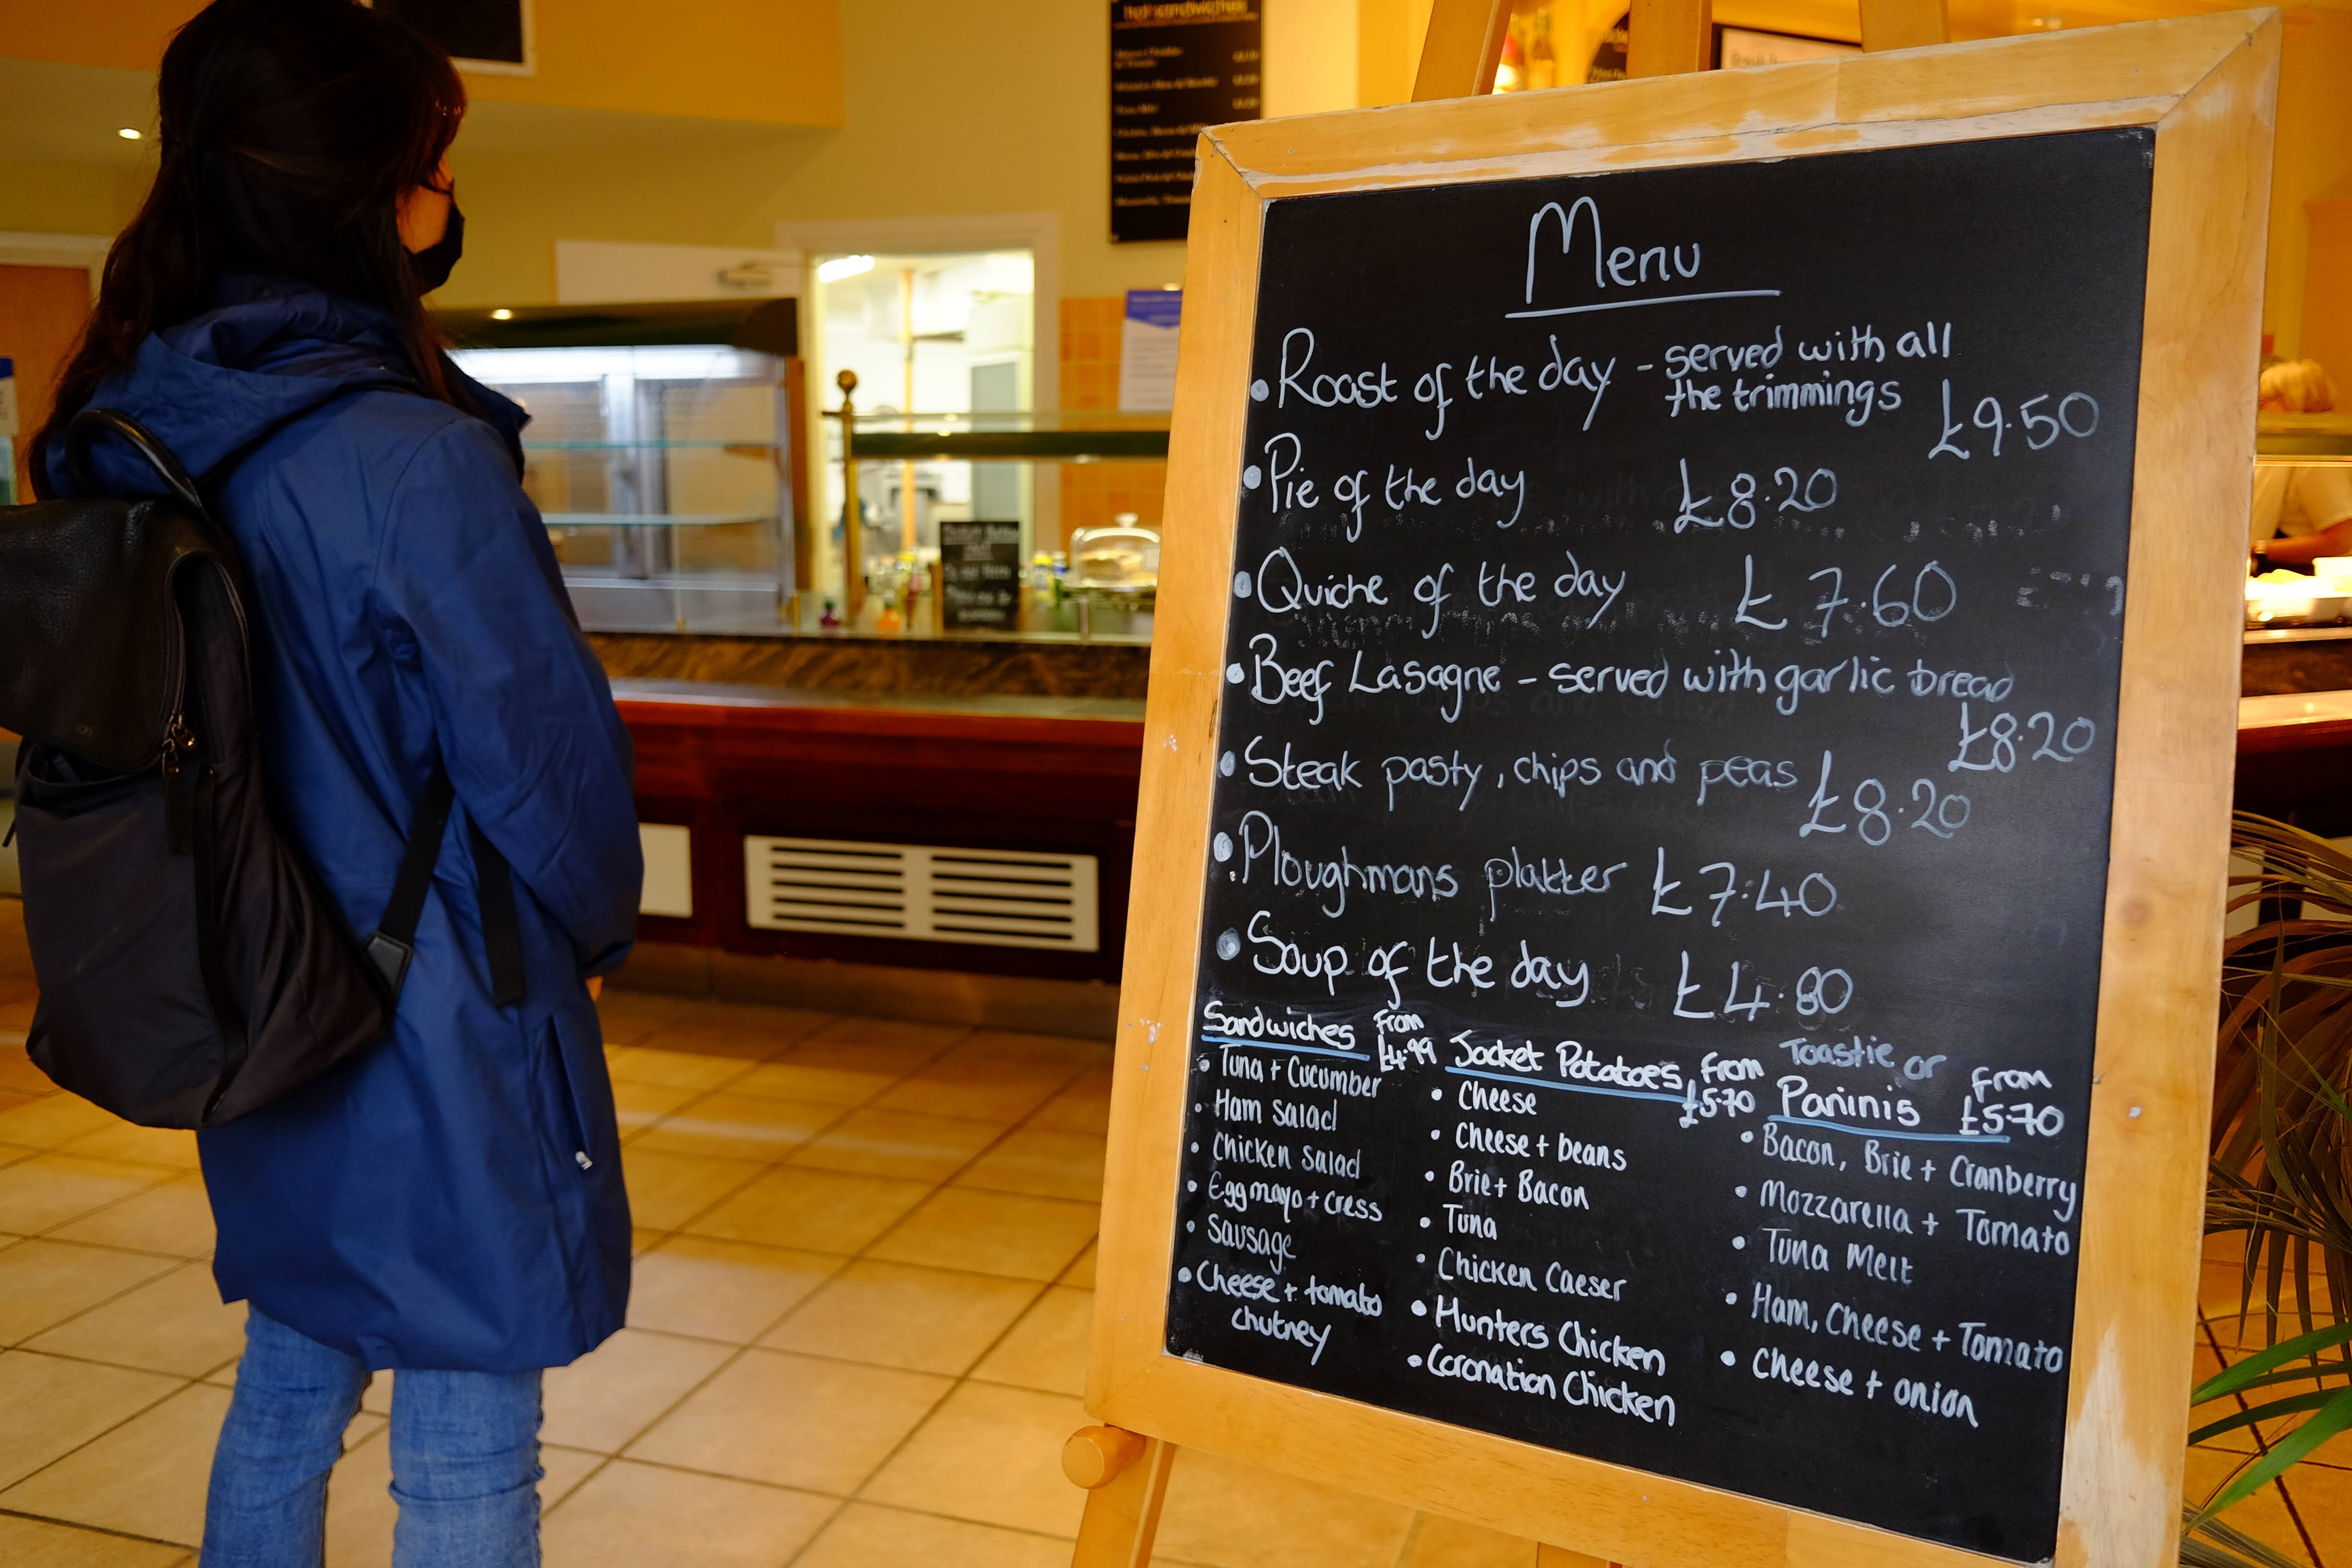 hot sandwiches
Menu
• Roast of the day - served with all
the trimmings
£9.50
• Pie of the day £8.20
• Quiche of the day £7.60
• Beef Lasagne - served with garlic bread
£8.20
• Steak pasty, chips and peas £8.20
• Ploughmans platter £7.40
• Soup of the day £4.80
Sandwiches from
£4.99
• Tuna + Cucumber
• Ham salad
• Chicken salad
• Egg mayo + cress
• Sausage
• Cheese + tomato
chutney
Jacket Potatoes from
£5.70
• Cheese
• Cheese + beans
• Brie + Bacon
• Tuna
• Chicken Caeser
• Hunters Chicken
• Coronation Chicken
Toastie or
Paninis from
£5.70
• Bacon, Brie + Cranberry
• Mozzarella + Tomato
• Tuna Melt
• Ham, Cheese + Tomato
• Cheese + onion